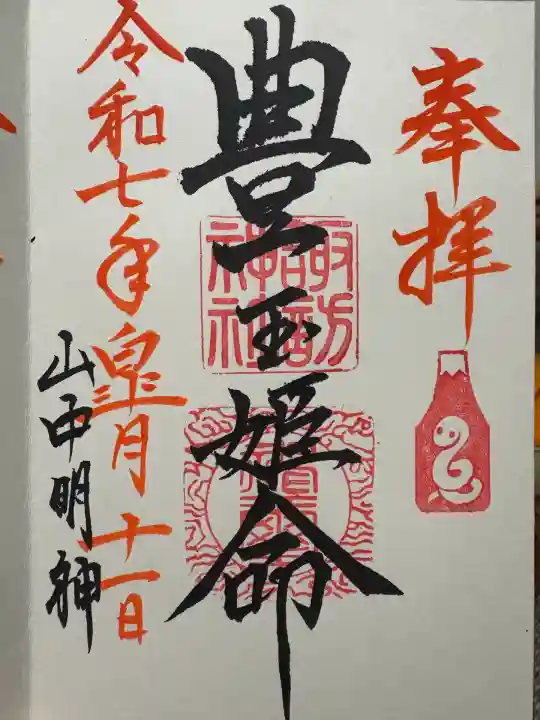 奉拝
豊玉姫命
諏訪神社
令和七年皐月十一日
山中明神